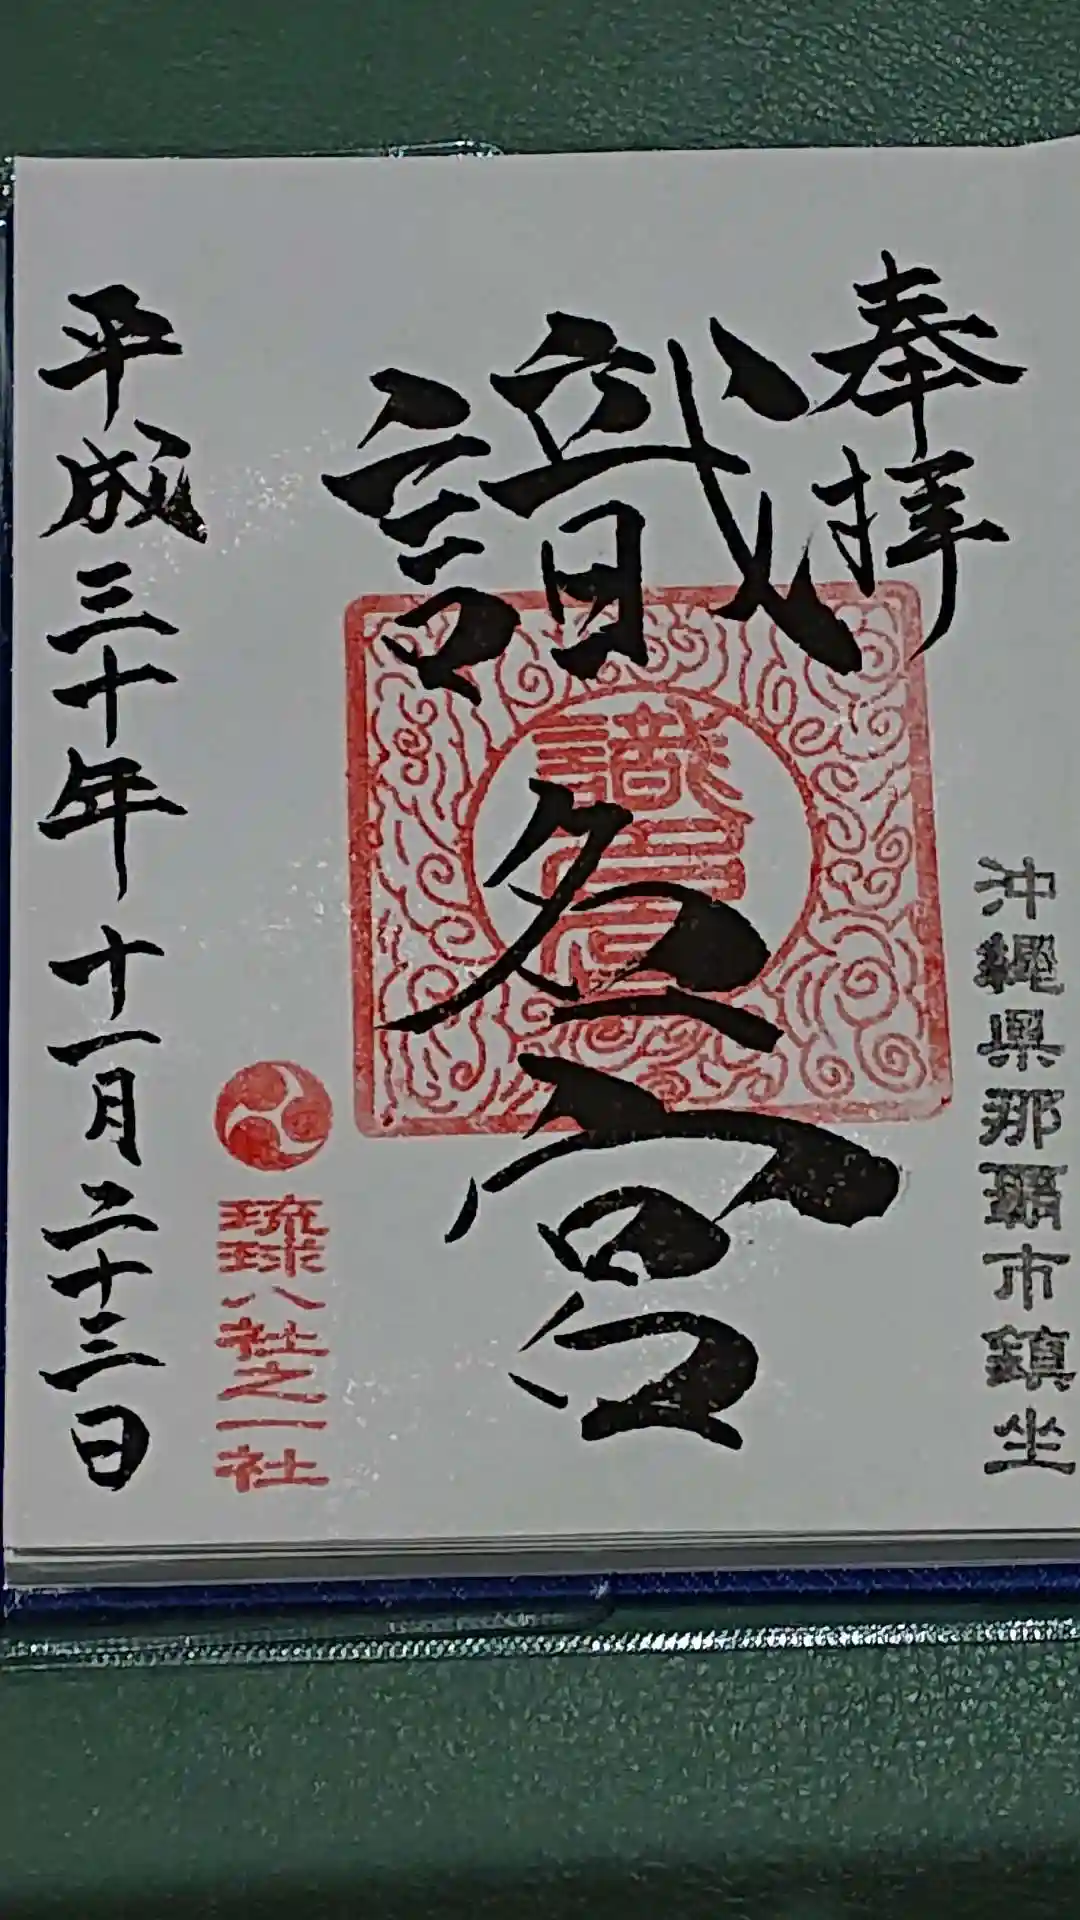 奉拝
沖縄県那覇市鎮坐
識名宮
識名宮
琉球八社之一社
平成三十年十一月二十三日